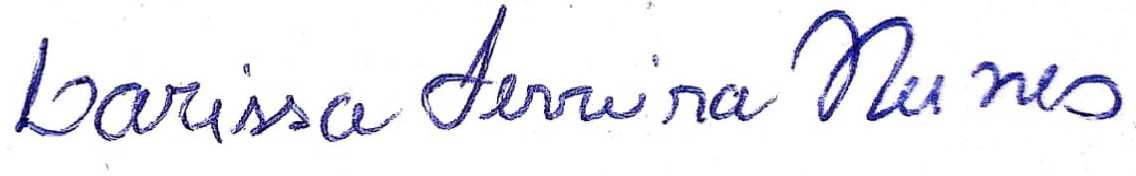 Larissa Ferreira Nunes